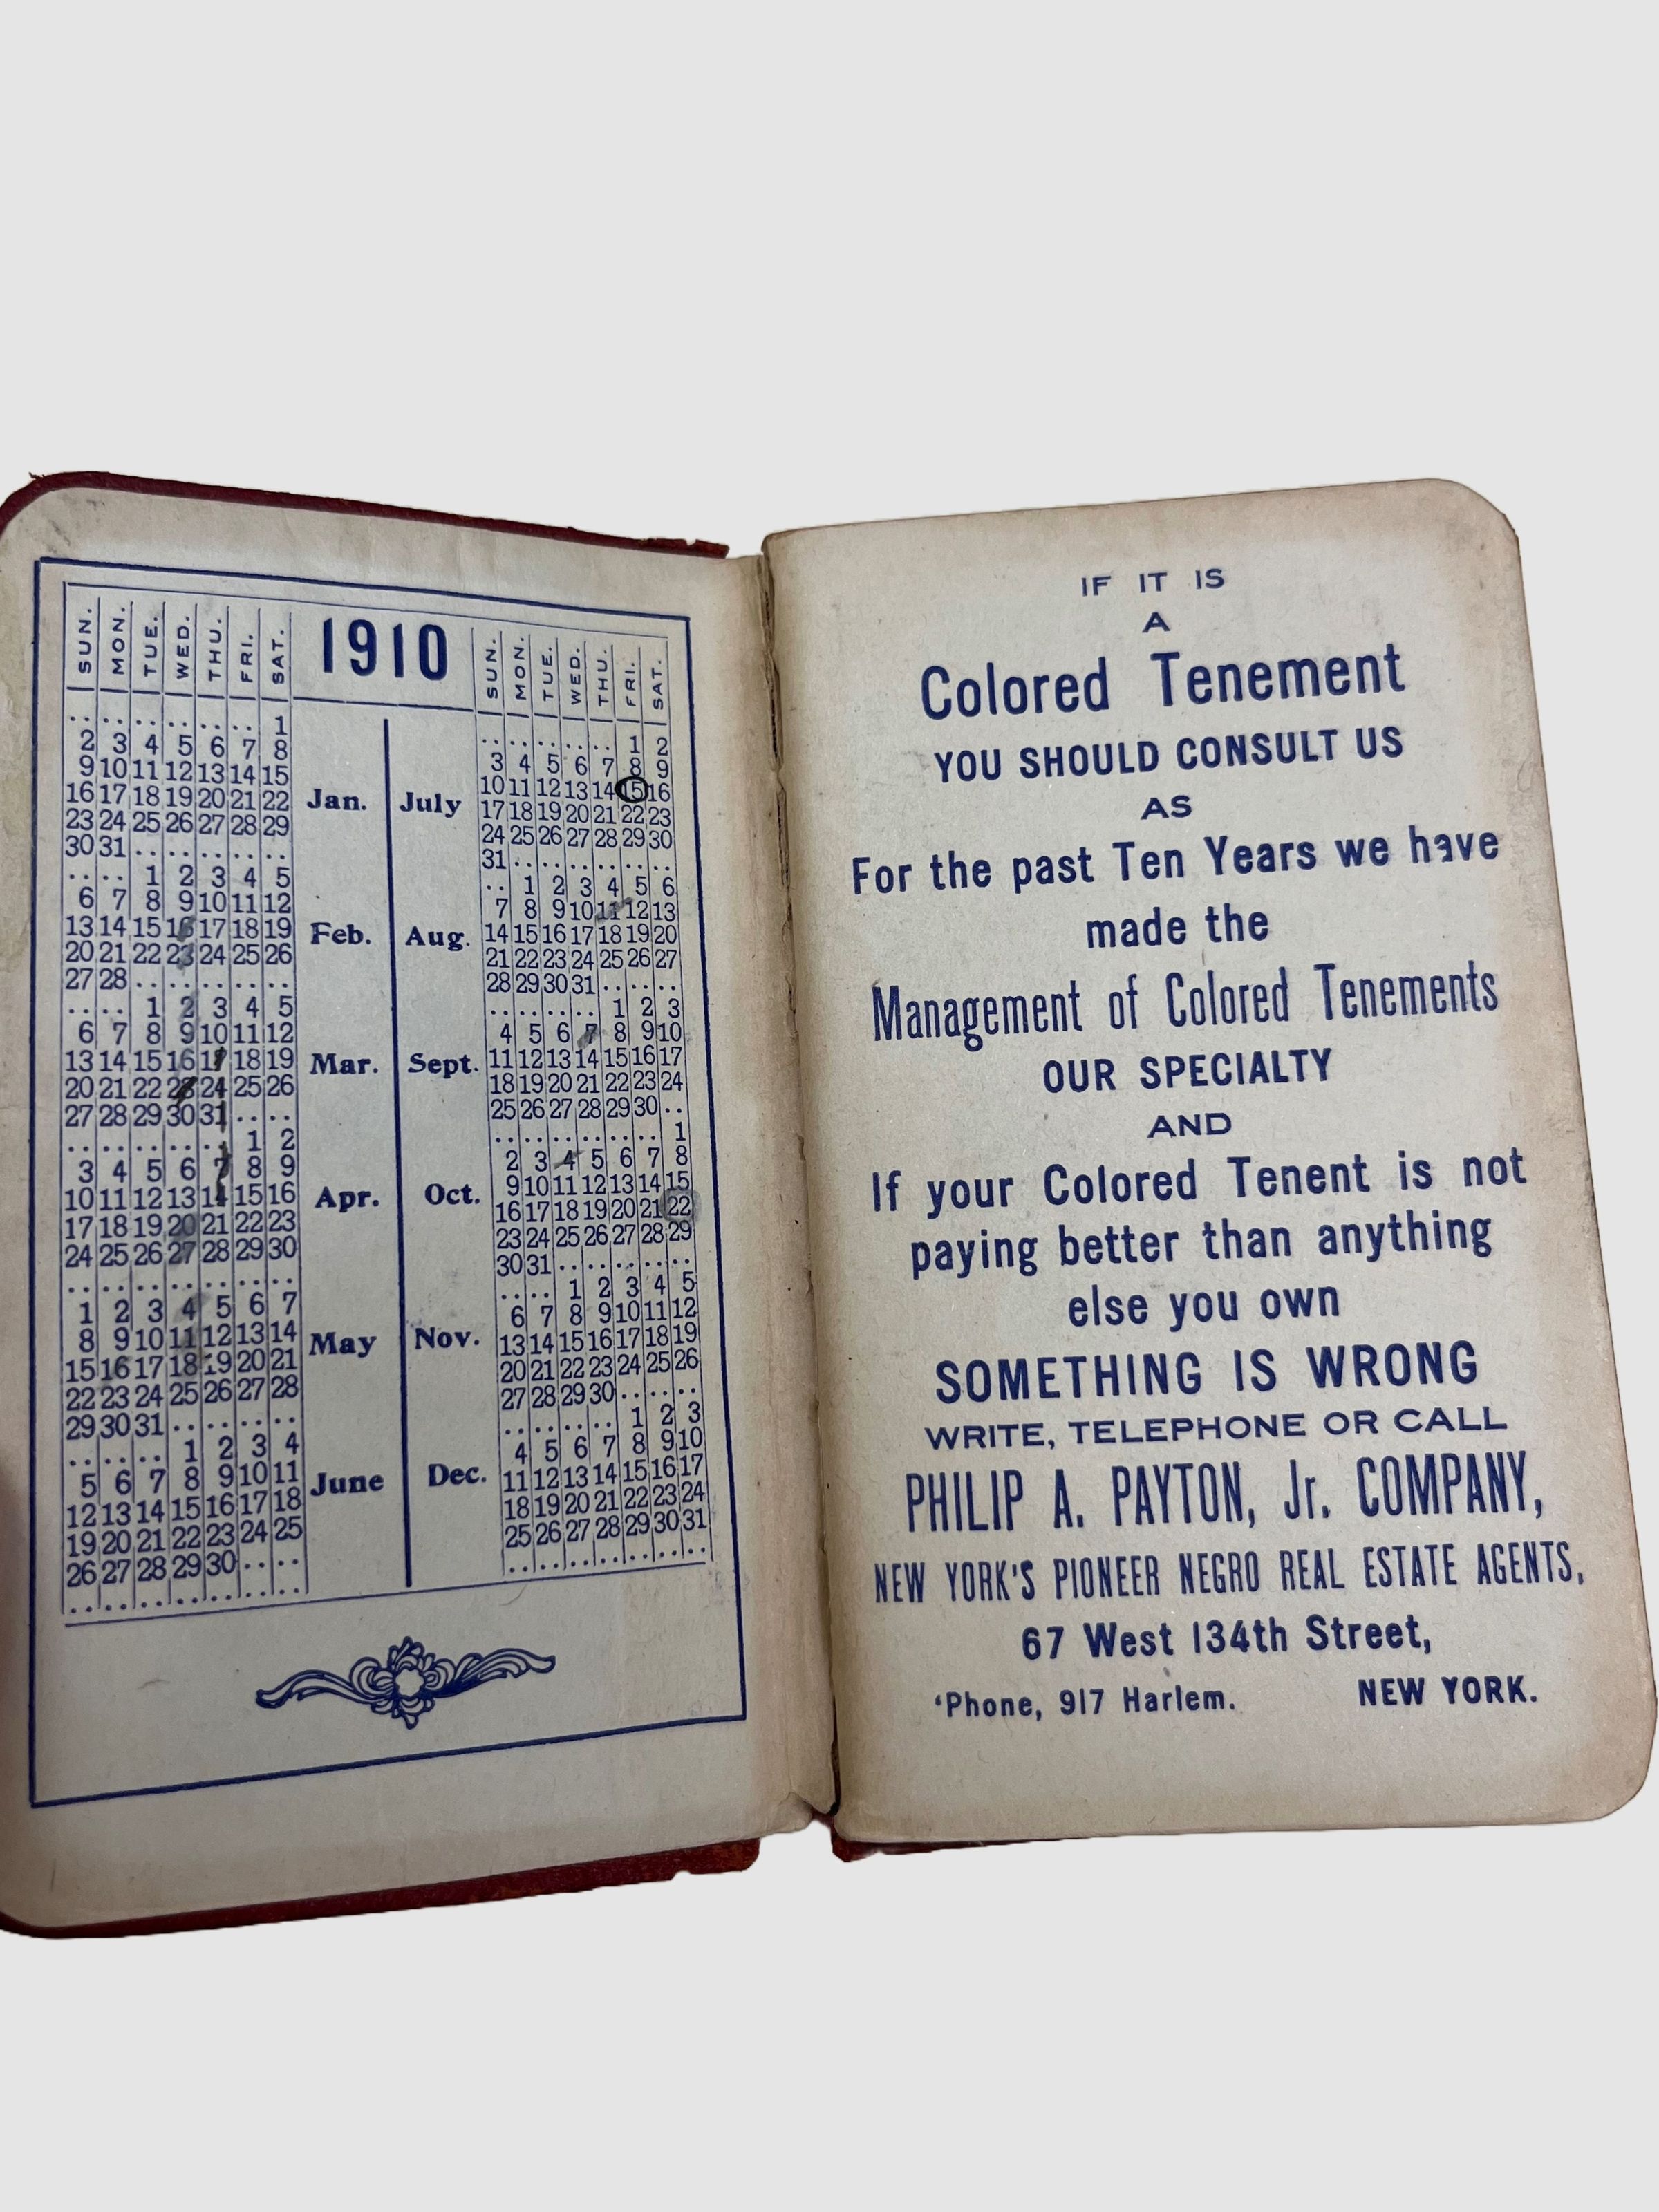 1910
SUN. MON. TUE. WED. THU. FRI. SAT.
Jan.
.. .. .. .. .. .. 1
2 3 4 5 6 7 8
9 10 11 12 13 14 15
16 17 18 19 20 21 22
23 24 25 26 27 28 29
30 31 .. .. .. .. ..
Feb.
.. .. 1 2 3 4 5
6 7 8 9 10 11 12
13 14 15 16 17 18 19
20 21 22 23 24 25 26
27 28 .. .. .. .. ..
Mar.
.. .. 1 2 3 4 5
6 7 8 9 10 11 12
13 14 15 16 17 18 19
20 21 22 23 24 25 26
27 28 29 30 31 .. ..
Apr.
.. .. .. .. .. 1 2
3 4 5 6 7 8 9
10 11 12 13 14 15 16
17 18 19 20 21 22 23
24 25 26 27 28 29 30
.. .. .. .. .. .. ..
May
1 2 3 4 5 6 7
8 9 10 11 12 13 14
15 16 17 18 19 20 21
22 23 24 25 26 27 28
29 30 31 .. .. .. ..
June
.. .. .. 1 2 3 4
5 6 7 8 9 10 11
12 13 14 15 16 17 18
19 20 21 22 23 24 25
26 27 28 29 30 .. ..
.. .. .. .. .. .. ..
SUN. MON. TUE. WED. THU. FRI. SAT.
July
.. .. .. .. .. 1 2
3 4 5 6 7 8 9
10 11 12 13 14 15 16
17 18 19 20 21 22 23
24 25 26 27 28 29 30
31 .. .. .. .. .. ..
Aug.
.. 1 2 3 4 5 6
7 8 9 10 11 12 13
14 15 16 17 18 19 20
21 22 23 24 25 26 27
28 29 30 31 .. .. ..
Sept.
.. .. .. .. 1 2 3
4 5 6 7 8 9 10
11 12 13 14 15 16 17
18 19 20 21 22 23 24
25 26 27 28 29 30 ..
Oct.
.. .. .. .. .. .. 1
2 3 4 5 6 7 8
9 10 11 12 13 14 15
16 17 18 19 20 21 22
23 24 25 26 27 28 29
30 31 .. .. .. .. ..
Nov.
.. .. 1 2 3 4 5
6 7 8 9 10 11 12
13 14 15 16 17 18 19
20 21 22 23 24 25 26
27 28 29 30 .. .. ..
Dec.
.. .. .. .. 1 2 3
4 5 6 7 8 9 10
11 12 13 14 15 16 17
18 19 20 21 22 23 24
25 26 27 28 29 30 31
.. .. .. .. .. .. ..
IF IT IS
A
Colored Tenement
YOU SHOULD CONSULT US
AS
For the past Ten Years we have
made the
Management of Colored Tenements
OUR SPECIALTY
AND
If your Colored Tenent is not
paying better than anything
else you own
SOMETHING IS WRONG
WRITE, TELEPHONE OR CALL
PHILIP A. PAYTON, Jr. COMPANY,
NEW YORK'S PIONEER NEGRO REAL ESTATE AGENTS,
67 West 134th Street,
'Phone, 917 Harlem. NEW YORK.